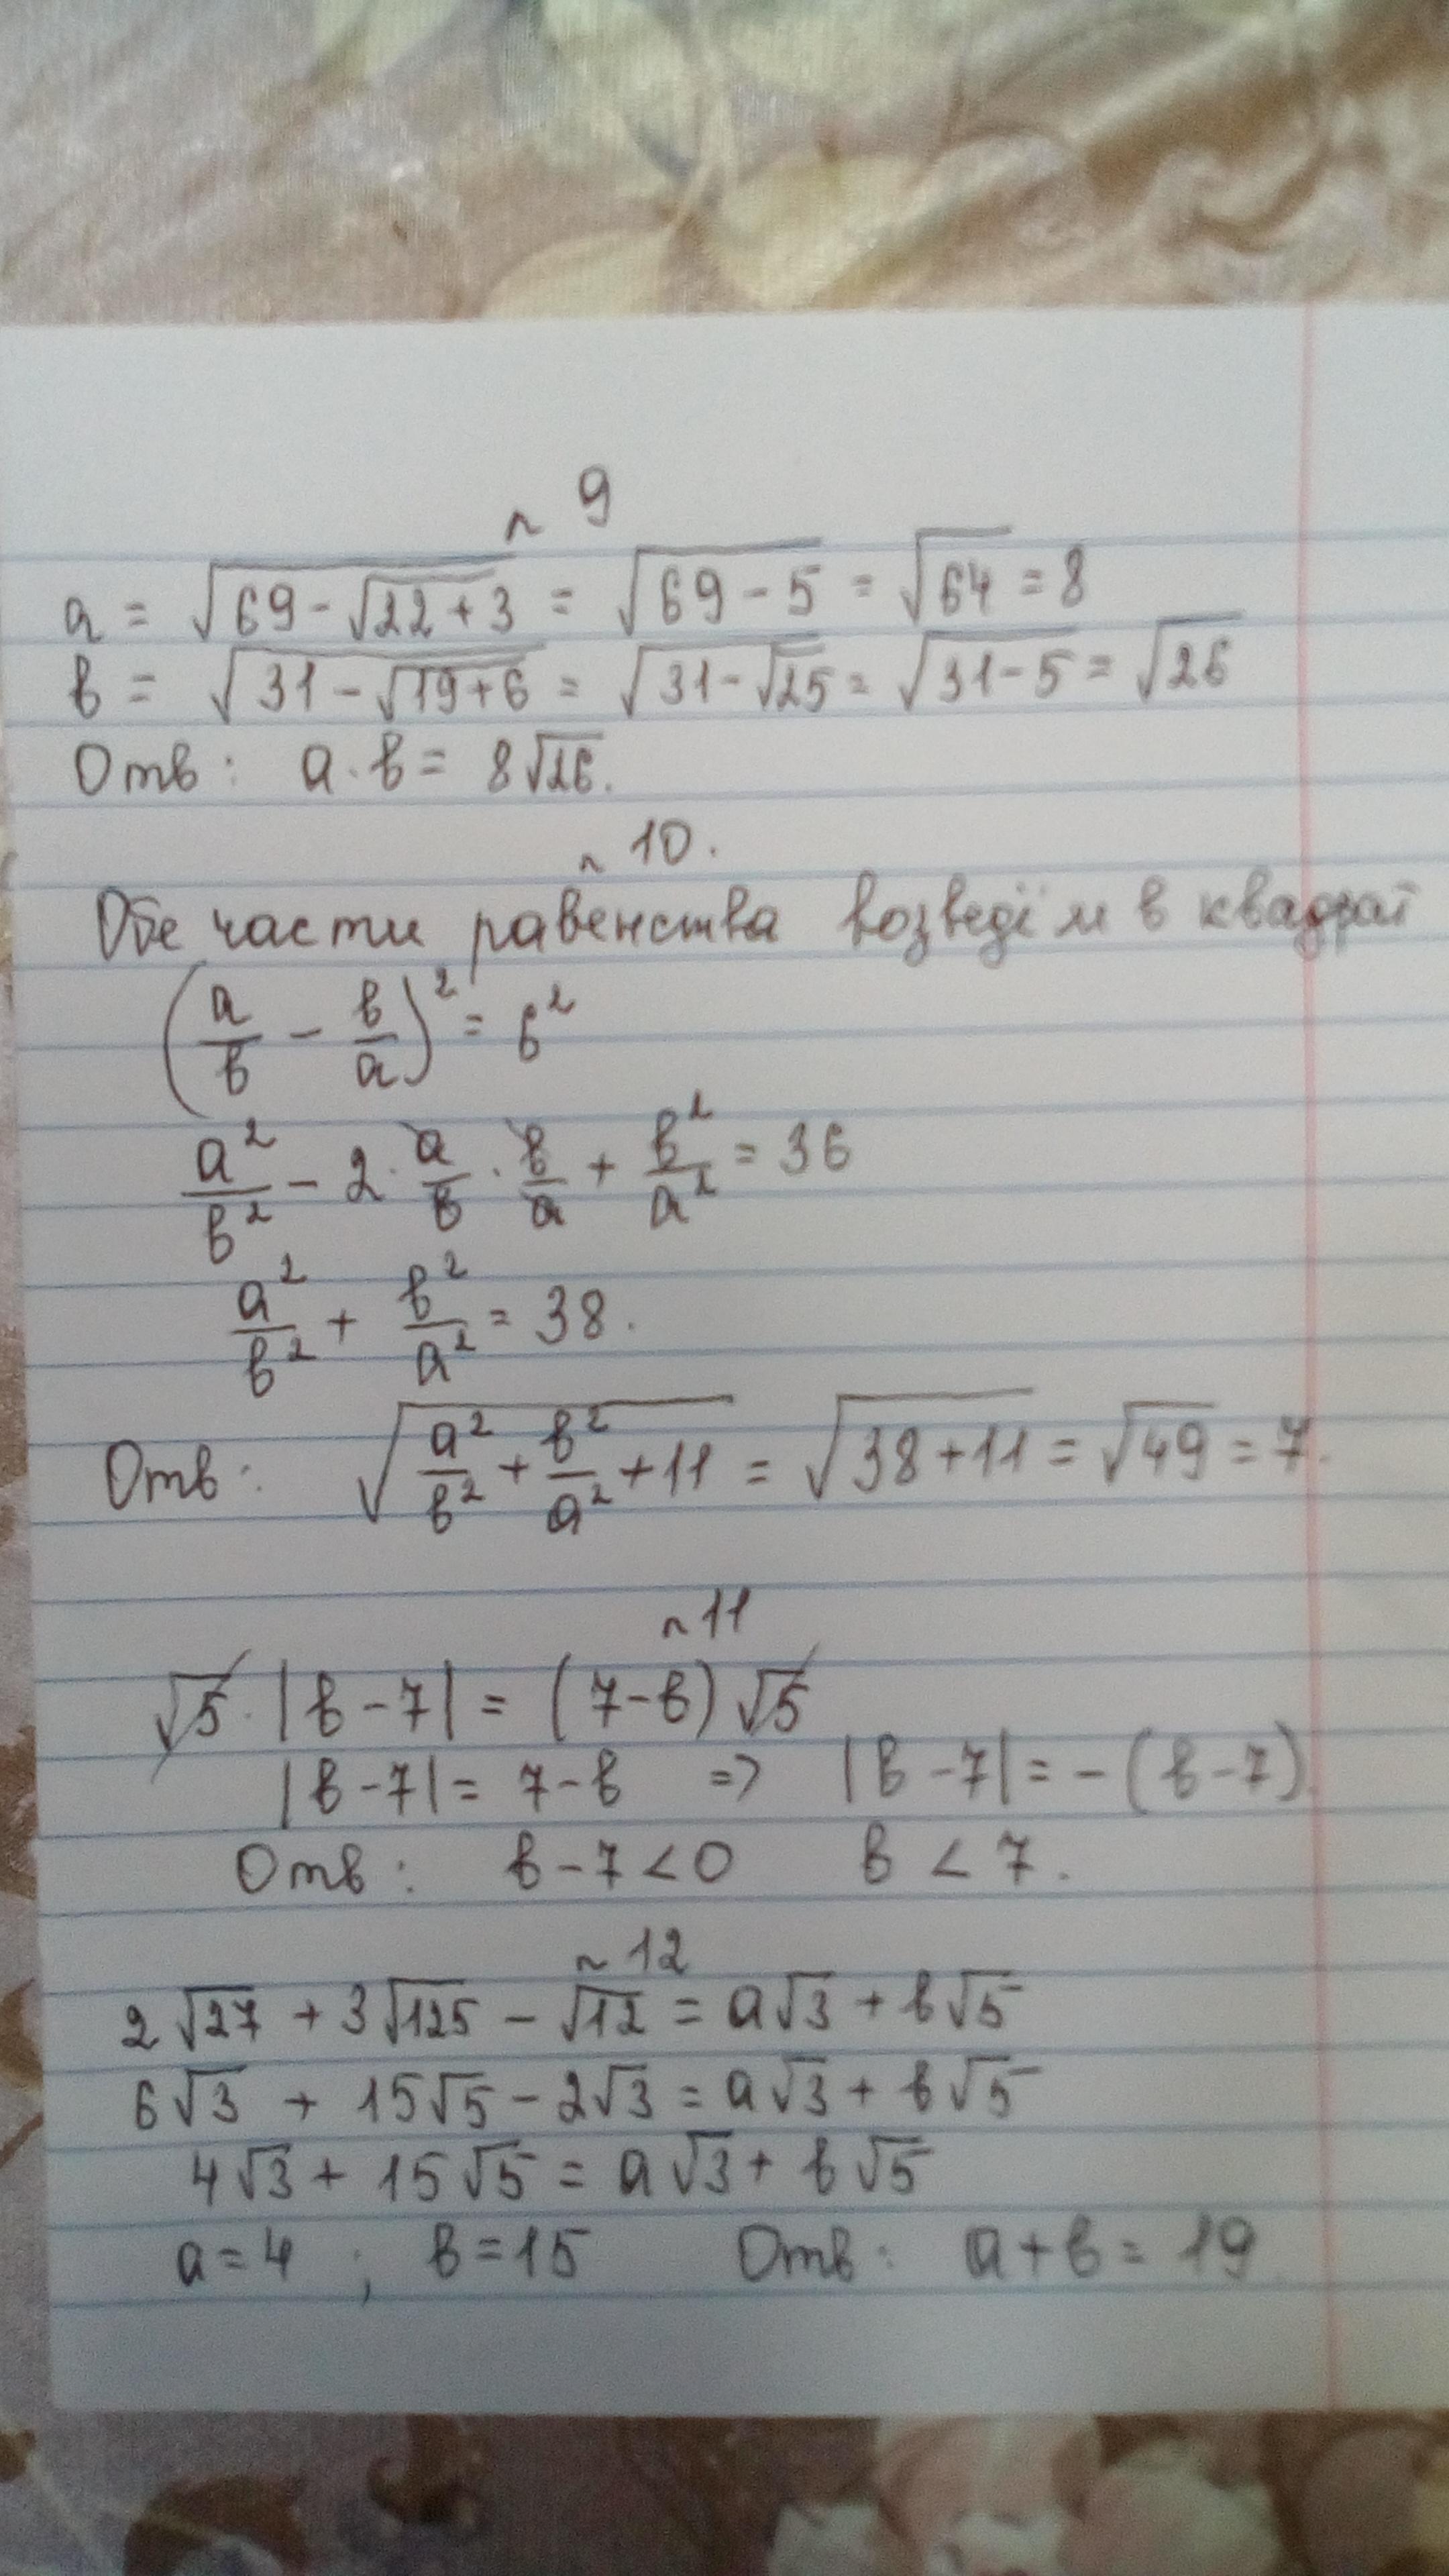 ~ 9
a = √(69-√(22+3)) = √(69-5) = √64 = 8
в = √(31-√(19+6)) = √(31-√25) = √(31-5) = √26
Отв: a·в = 8√26.
~ 10.
Обе части равенства возведём в квадрат
(a/в - в/a)² = 6²
a²/в² - 2·a/в·в/a + в²/a² = 36
a²/в² + в²/a² = 38.
Отв: √(a²/в² + в²/a² + 11) = √(38+11) = √49 = 7.
~ 11
√5·|в-7| = (7-в)√5
|в-7| = 7-в => |в-7| = -(в-7).
Отв: в-7<0 в < 7.
~ 12
2√27 + 3√125 - √12 = a√3 + в√5
6√3 + 15√5 - 2√3 = a√3 + в√5
4√3 + 15√5 = a√3 + в√5
a=4 ; в=15 Отв: a+в = 19